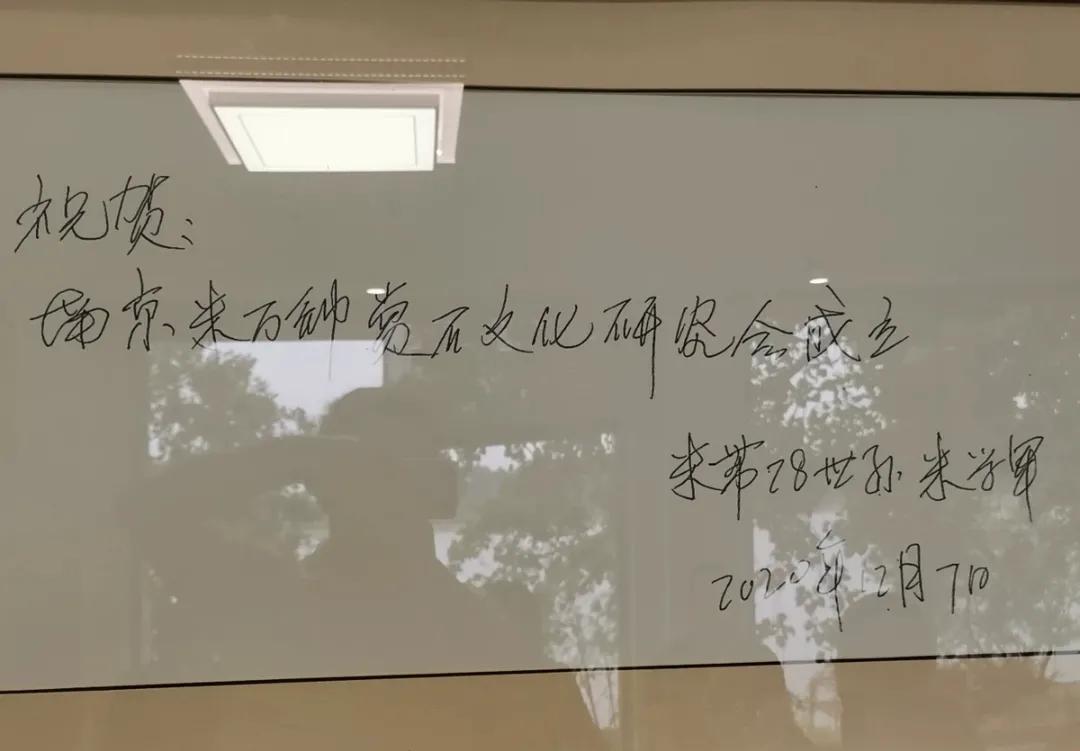 祝贺:
南京米万钟赏石文化研究会成立
米芾28世孙 米学军
2020年12月7日